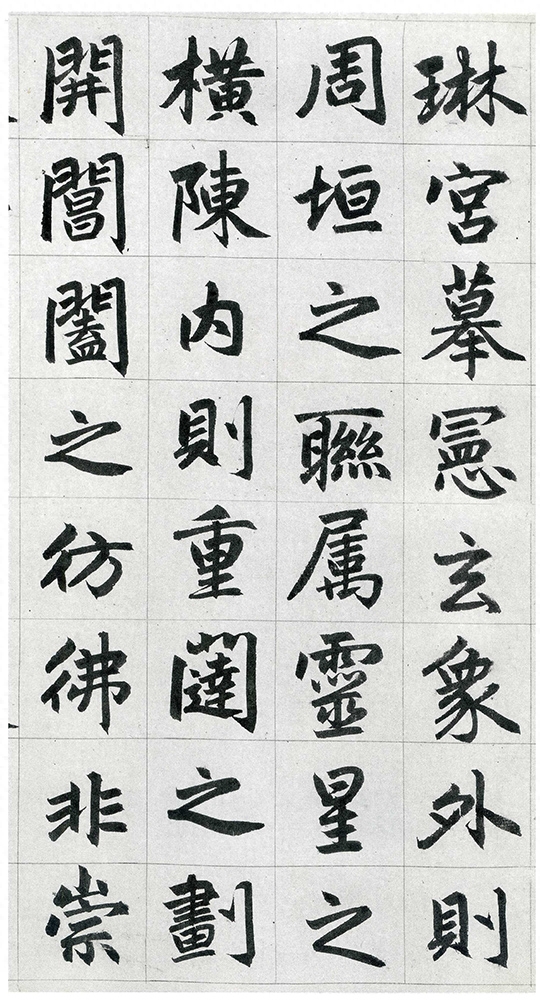 琳宮摹憲玄象外則
周垣之聯属靈星之
橫陳内則重闥之劃
開閶闔之彷彿非崇